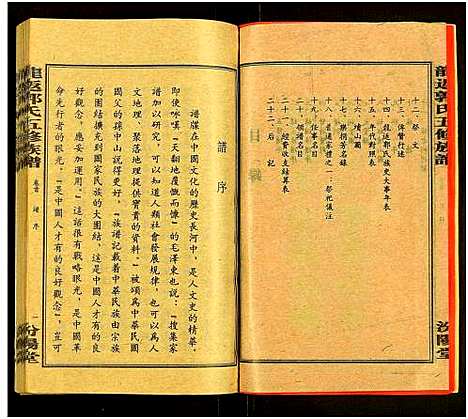 龍返郭氏五修族譜
汾陽堂
十二、祭文
十三、俾贊行述
十四、龍返郭氏族史大事年表
十五、年代對照表
十六、墳山圖
十七、樂捐芳名錄
十八、任事名目
十九、家禮會要之一：祭祀儀注
二十、
二十一、經費收支結算表
二十二、後記
譜序
譜牒在中國文化的歷史長河中，是人文史的精華。
即使咏嘆「天翻地覆慨而慷」的毛澤東也說：「搜集家
譜加以研究，可以知道人類社會發展規律，也可以爲人
文地理、聚落地理提供寶貴的資料。」被頌爲中華民族
國父的孫中山說得更好。「族譜記載着中華民族由宗族
的團結，擴大到國家民族的大團結，這是中國人才有的良
好觀念，應加運用。」這話很有戰略眼光，是中國革
命先行者的眼光。「是中國人才有的良好觀念」，並可
龍返郭氏五修族譜
卷首
譜序
一
汾陽堂